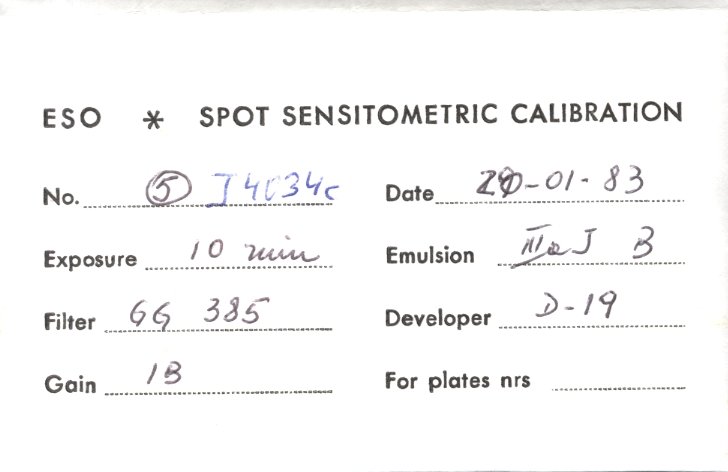 ESO * SPOT SENSITOMETRIC CALIBRATION
No. ⑤ J4034c Date -01-83
Exposure 10 min Emulsion IIIaJ B
Filter GG 385 Developer D-19
Gain 1B For plates nrs